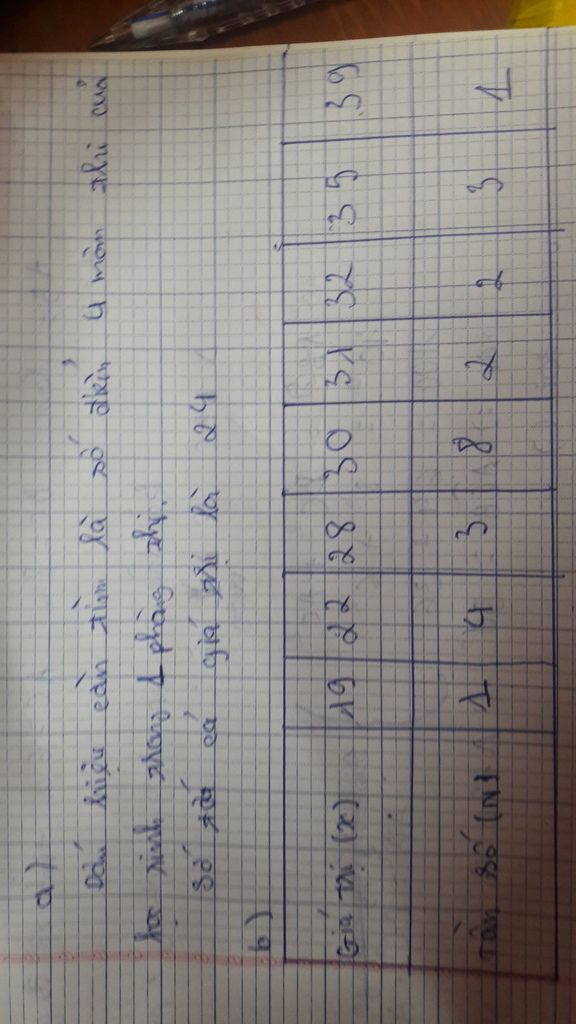 a)
Dấu hiệu cần tìm là số điểm 4 môn thi của
học sinh trong 1 phòng thi.
Số tất cả giá trị là 24
b)
Giá trị (x) 19 22 28 30 31 32 35 39
Tần số (N) 1 4 3 8 2 2 3 1